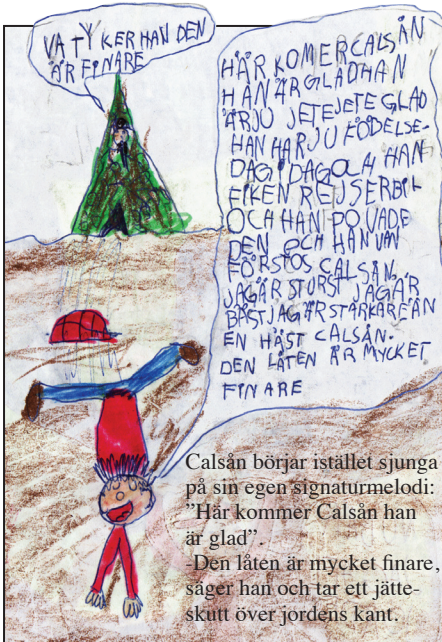 VA TYKER HAN DEN
ÄR FINARE
HÄR KOMER CALSÅN
HAN ÄR GLAD HAN
ÄR JU JETEJETE GLAD
HAN HAR JU FÖDELSE-
DAG I DAG OCH HAN
FIKEN REJSERBIL
OCH HAN POVADE
DEN OCH HAN VAN
FÖRSTOS CALSÅN.
JAG ÄR STÖRST JAG ÄR
BÄST JAG ÄR STARKARE ÄN
EN HÄST CALSÅN.
DEN LÅTEN ÄR MYCKET
FINARE
Calsån börjar istället sjunga
på sin egen signaturmelodi:
”Här kommer Calsån han
är glad”.
-Den låten är mycket finare,
säger han och tar ett jätte-
skutt över jordens kant.